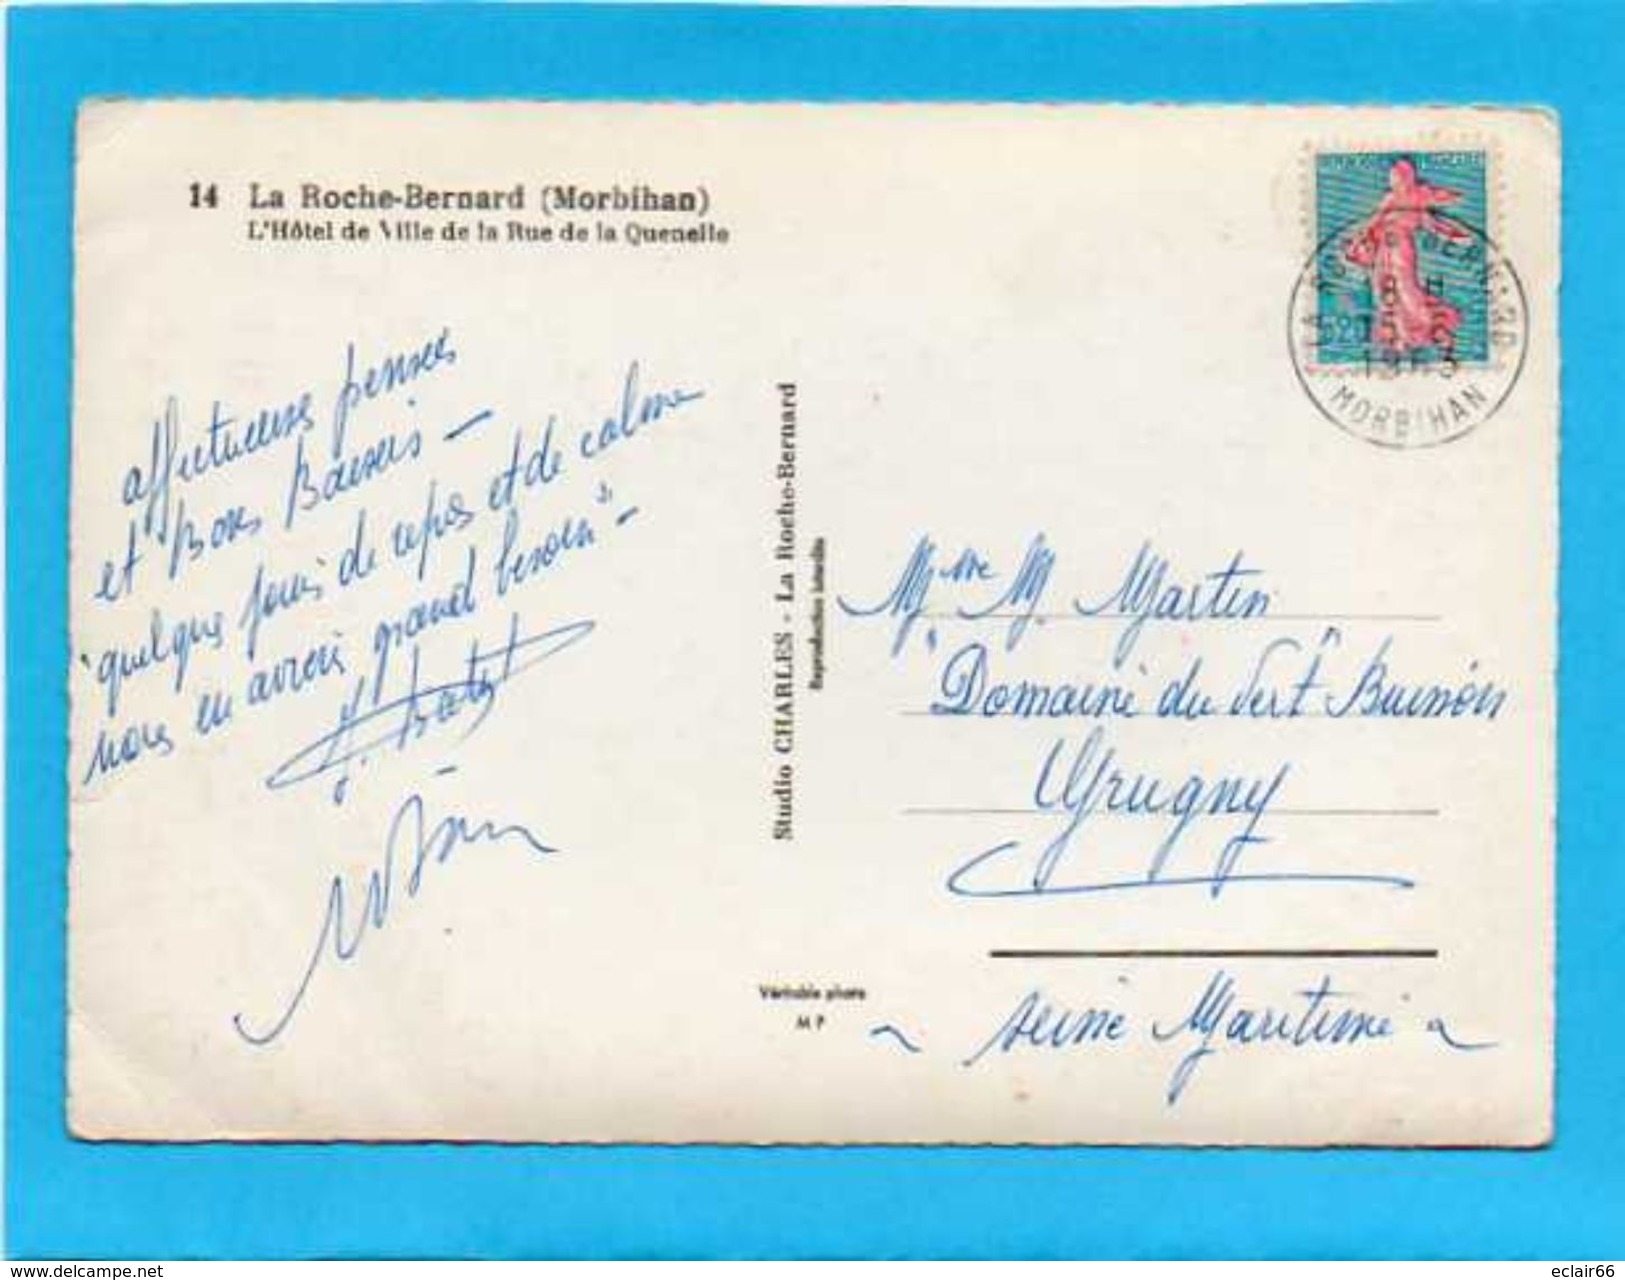 14 La Roche-Bernard (Morbihan)
L'Hôtel de Ville de la Rue de la Quenelle
affectueuses pensées
et Bons Baisers -
"quelques jours de repos et de calme
nous en avions grand besoin" -
Studio CHARLES - La Roche-Bernard
Reproduction interdite
Véritable photo
M P
LA ROCHE BERNARD
18 H
15 - 6
1963
MORBIHAN
Mme M. Martin
"Domaine du Vert Buisson"
Yprugny
Seine Maritime
eclair66
delcampe.net